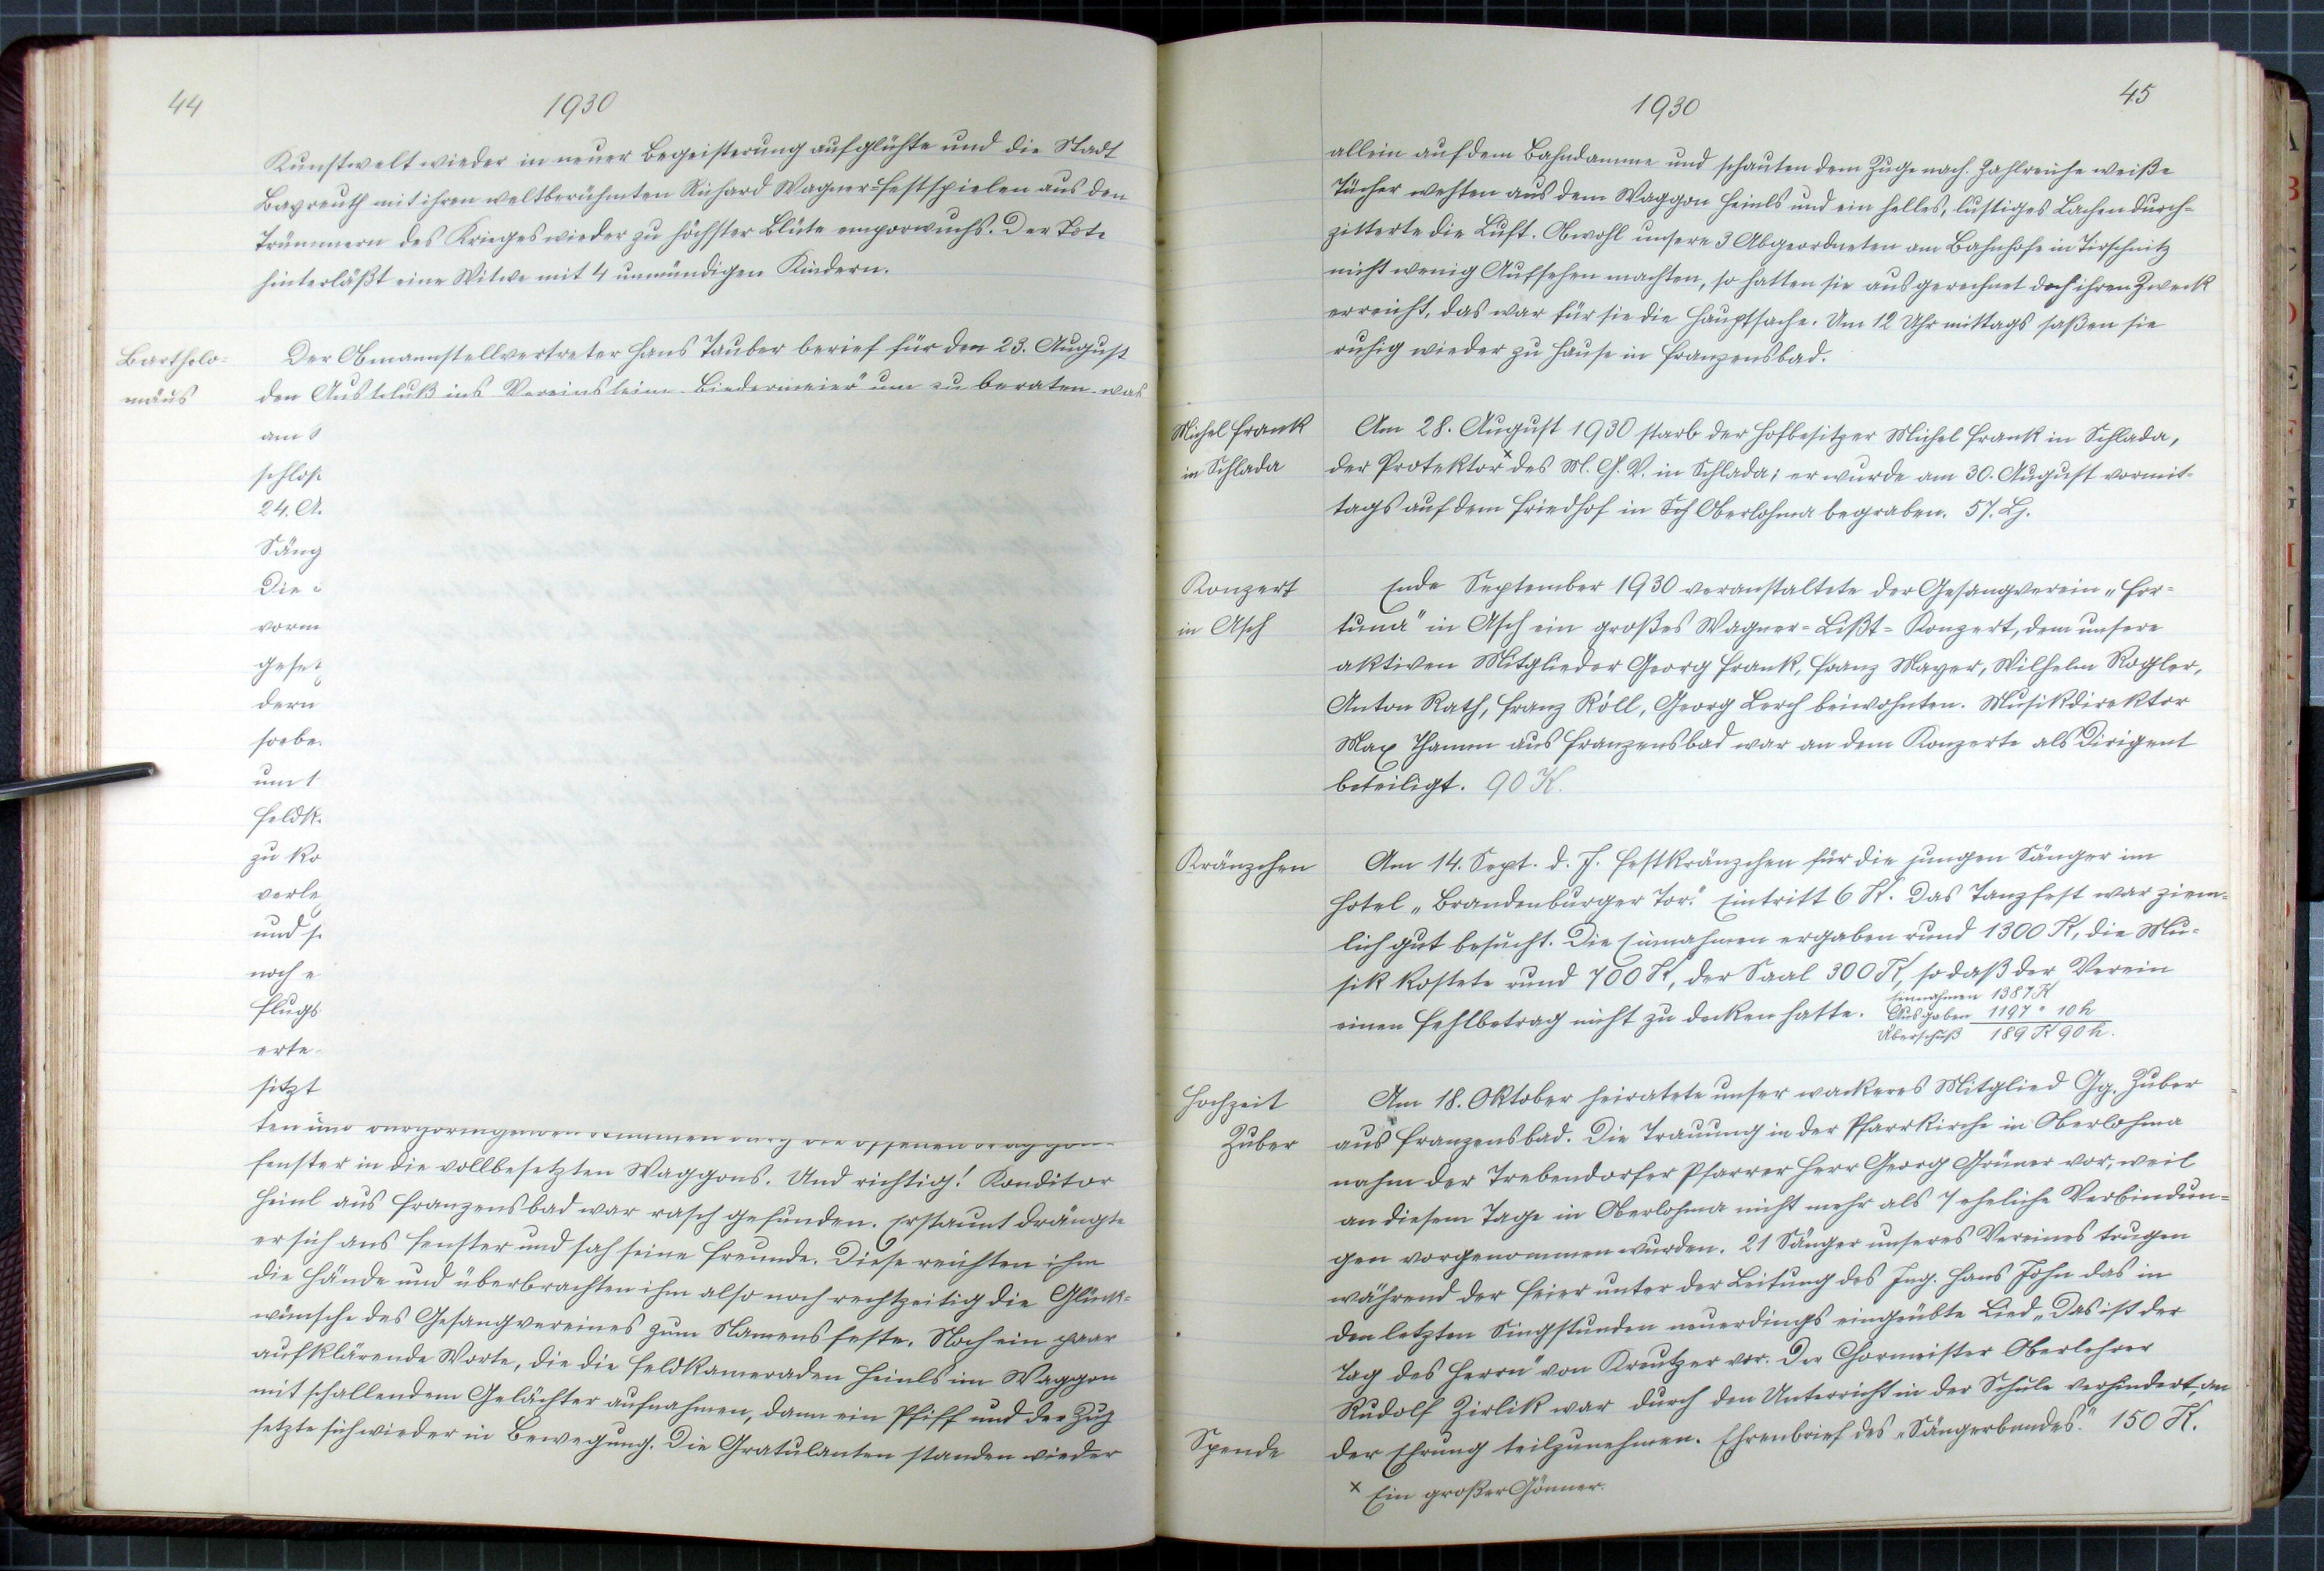 44
1930
Kunstwelt wieder in neuer Begeisterung aufglühte und die Stadt
Bayreuth mit ihren weltberühmten Richard Wagner-Festspielen aus den
Trümmern des Krieges wieder zu höchster Blüte emporwuchs. Der Tote
hinterläßt eine Witwe mit 4 unmündigen Kindern.
Bartholo-
mäus
Der Obmannstellvertreter Hans Tauber berief für den 23. August
den Ausschuß ins Vereinsheim „Biedermeier" um zu beraten, was
am
schloss
24. A.
Säng
Die
vorm
geset
dern
soebe
um 1
Feldk.
zu ko
verle
und s
noch e
flugs
erte
sitzt
ten und
fenster in die vollbesetzten Waggons. Und richtig! Konditor
Heinl aus Franzensbad war rasch gefunden. Erstaunt drängte
er sich ans Fenster und sah seine Freunde. Diese reichten ihm
die Hände und überbrachten ihm also noch rechtzeitig die Glück-
wünsche des Gesangvereines zum Namensfeste. Noch ein paar
aufklärende Worte, die die Feldkameraden Heinls im Waggon
mit schallendem Gelächter aufnahmen, dann ein Pfiff und der Zug
setzte sich wieder in Bewegung. Die Gratulanten standen wieder
45
1930
allein auf dem Bahndamme und schauten dem Zuge nach. Zahlreiche weiße
Tücher wehten aus dem Waggon Heinls und ein helles, lustiges Lachen durch-
zitterte die Luft. Obwohl unsere 3 Abgeordneten am Bahnhofe in Tirschnitz
nicht wenig Aufsehen machten, so hatten sie ausgerechnet doch ihren Zweck
erreicht, das war für sie die Hauptsache. Um 12 Uhr mittags saßen sie
ruhig wieder zu Hause in Franzensbad.
Michel Frank
in Schlada
Am 28. August 1930 starb der Hofbesitzer Michel Frank in Schlada,
der Protektor x des M. G. V. in Schlada; er wurde am 30. August vormit-
tags auf dem Friedhof in Sch Oberlohma begraben. 57. Lj.
Konzert
in Asch
Ende September 1930 veranstaltete der Gesangverein „For-
tuna" in Asch ein großes Wagner-Lißt-Konzert, dem unsere
aktiven Mitglieder Georg Frank, Franz Mayer, Wilhelm Rogler,
Anton Rath, Franz Röll, Georg Lerch beiwohnten. Musikdirektor
Max Thamm aus Franzensbad war an dem Konzerte als Dirigent
beteiligt. 90 K.
Kränzchen
Am 14. Sept. d. J. Festkränzchen für die jungen Sänger im
Hotel „Brandenburger Tor." Eintritt 6 K. Das Tanzfest war ziem-
lich gut besucht. Die Einnahmen ergaben rund 1300 K, die Mu-
sik kostete rund 700 K, der Saal 300 K, so daß der Verein
einen Fehlbetrag nicht zu decken hatte.
Einnahmen 1387 K
Ausgaben 1197 " 10 h
Überschuß 189 K 90 h.
Hochzeit
Zuber
Am 18. Oktober heiratete unser wackeres Mitglied Gg. Zuber
aus Franzensbad. Die Trauung in der Pfarrkirche in Oberlohma
nahm der Trebendorfer Pfarrer Herr Georg Grüner vor, weil
an diesem Tage in Oberlohma nicht mehr als 7 eheliche Verbindun-
gen vorgenommen wurden. 21 Sänger unseres Vereines trugen
während der Feier unter der Leitung des Ing. Hans John das in
den letzten Singstunden neuerdings eingeübte Lied „Das ist der
Tag des Herrn" von Kreutzer vor. Der Chormeister Oberlehrer
Rudolf Zirlik war durch den Unterricht in der Schule verhindert, an
Spende
der Ehrung teilzunehmen. Ehrenbrief des „Sängerbundes." 150 K.
x Ein großer Gönner.